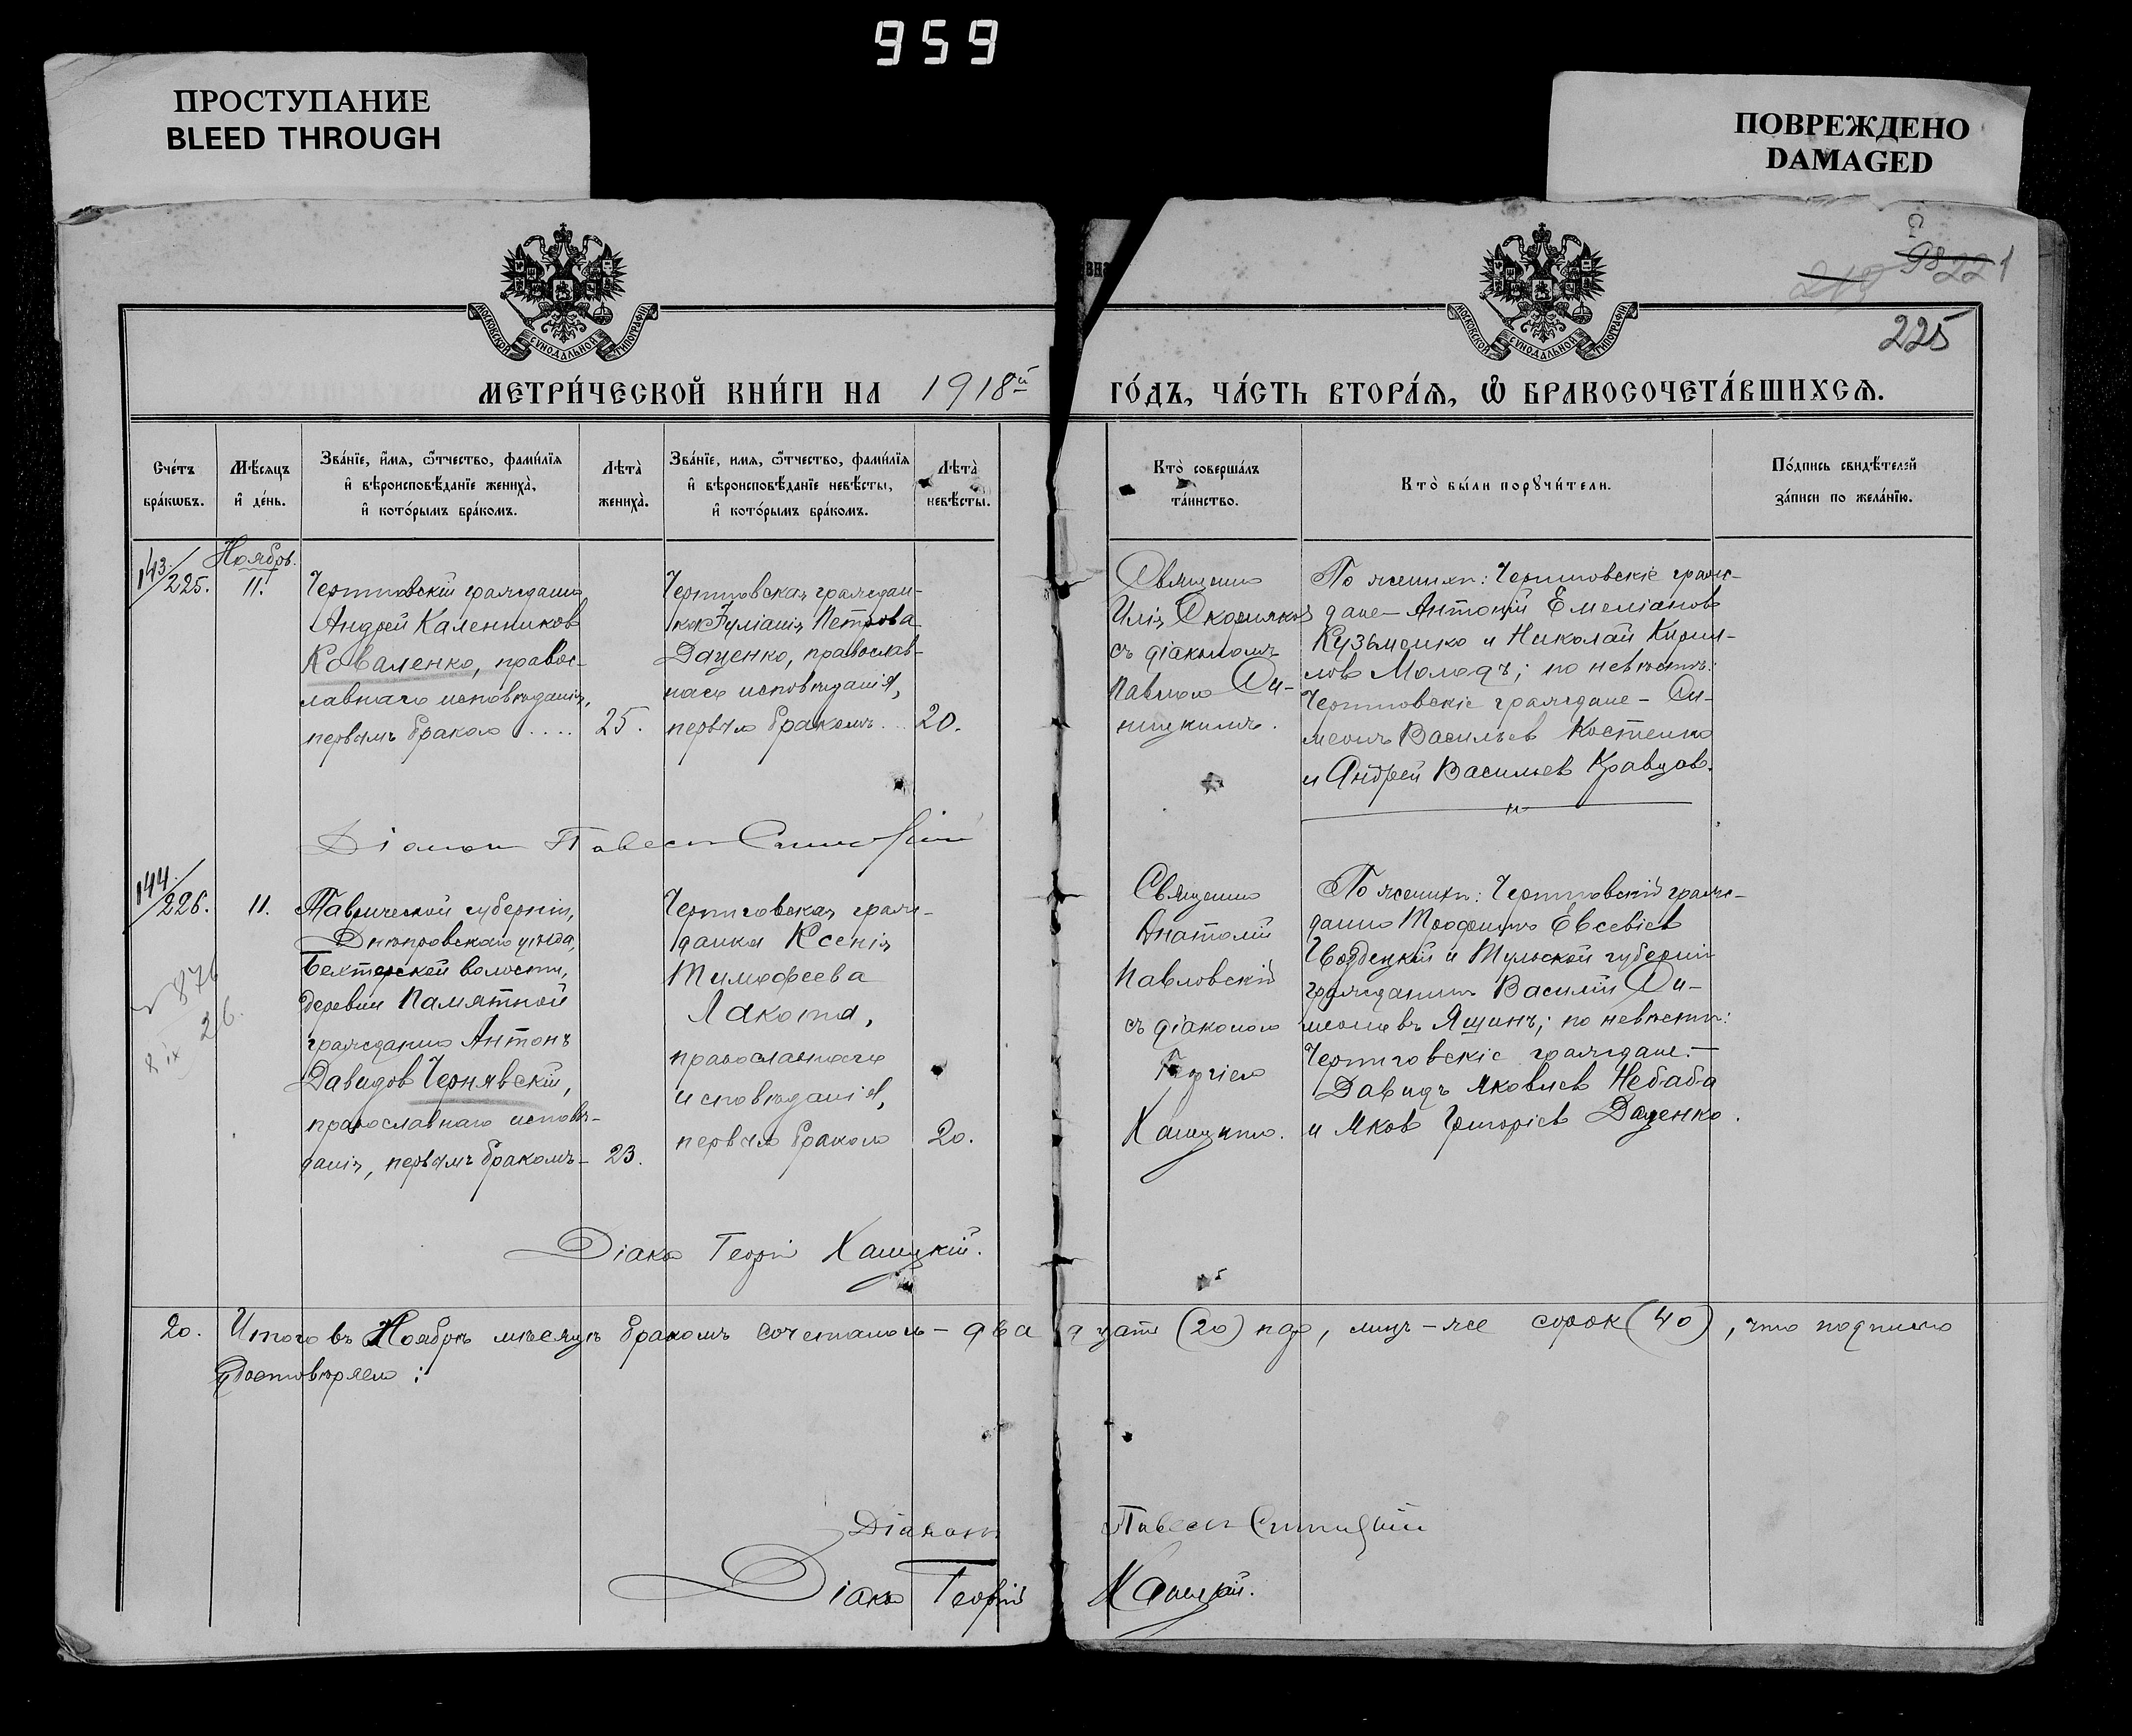 959
ПРОСТУПАНИЕ
BLEED THROUGH
ПОВРЕЖДЕНО
DAMAGED
98 221
225
МОСКОВСКОЙ СѴНОДАЛЬНОЙ ТИПОГРАФІИ
МОСКОВСКОЙ СѴНОДАЛЬНОЙ ТИПОГРАФІИ
МЕТРИ́ЧЕСКОЙ КНИ́ГИ НА 1918й ГО́ДЪ, ЧА́СТЬ ВТОРА́Ѧ, Ѽ БРАКОСОЧЕТА́ВШИХСѦ.
Сче́тъ
бра́кѡвъ.
Мѣ́сяцъ
и҆ де́нь.
Зва́нїе, и҆́мя, ѻ҆́тчество, фами́лїя
и҆ вѣроисповѣ́данїе жениха̀,
и҆ кото́рымъ бра́комъ.
Лѣта̀
жениха̀.
Зва́нїе, имя, ѻ҆́тчество, фами́лїя
и҆ вѣроисповѣ́данїе невѣ́сты,
и҆ кото́рымъ бра́комъ.
Лѣта̀
невѣ́сты.
Кто̀ соверша́лъ
та́инство.
Кто̀ бы́ли порꙋчи́тели.
По́дпись свидѣ́телей
за́писи по жела́нїю.
143/225.
Ноябрь.
11.
Черниговскій гражданинъ
Андрей Каленников
Коваленко, правос-
лавнаго исповѣданія,
первымъ бракомъ ....
25.
Черниговская граждан-
ка Іуліанія Петрова
Даценко, православ-
наго исповѣданія,
первымъ бракомъ ...
20.
Священникъ
Илія
съ діакономъ
Павломъ Си-
ницкимъ.
По женихѣ: Черниговскіе граж-
дане – Антоній Емеліановъ
Кузьменко и Николай Кирил-
ловъ Молодъ; по невѣстѣ:
Черниговскіе граждане – Си-
меонъ Васильев Костенко
и Андрей Васильев Кравцов.
Діаконъ Павелъ Синицкій
144/226.
11.
Таврической губерніи,
Днѣпровскаго уѣзда,
Бехтерской волости,
деревни Памятной
гражданинъ Антонъ
Давидов Чернявскій,
православнаго исповѣ-
данія, первымъ бракомъ –
23.
Черниговская граж-
данка Ксенія
Тимофеева
Лакота,
православнаго
исповѣданія,
первымъ бракомъ
20.
Священникъ
Анатолій
Павловскій
съ діакономъ
Георгіемъ
По женихѣ: Черниговскій граж-
данинъ Трофимъ Евсевіев
и Тульской губерніи
гражданинъ Василій Си-
меоновъ Яшинъ; по невѣстѣ:
Черниговскіе граждане. –
Давидъ Яковлев Небаба
и Яков Григоріев Даценко.
876
26.
Діаконъ Георгій Ханицкій.
20. Итого въ Ноябрѣ мѣсяцѣ бракомъ сочеталось – двадцать (20) паръ, лицъ – же сорок (40), что подписью
удостовѣряемъ:
Діаконъ Павелъ Синицкій
Діаконъ Георгій Ханицкій.